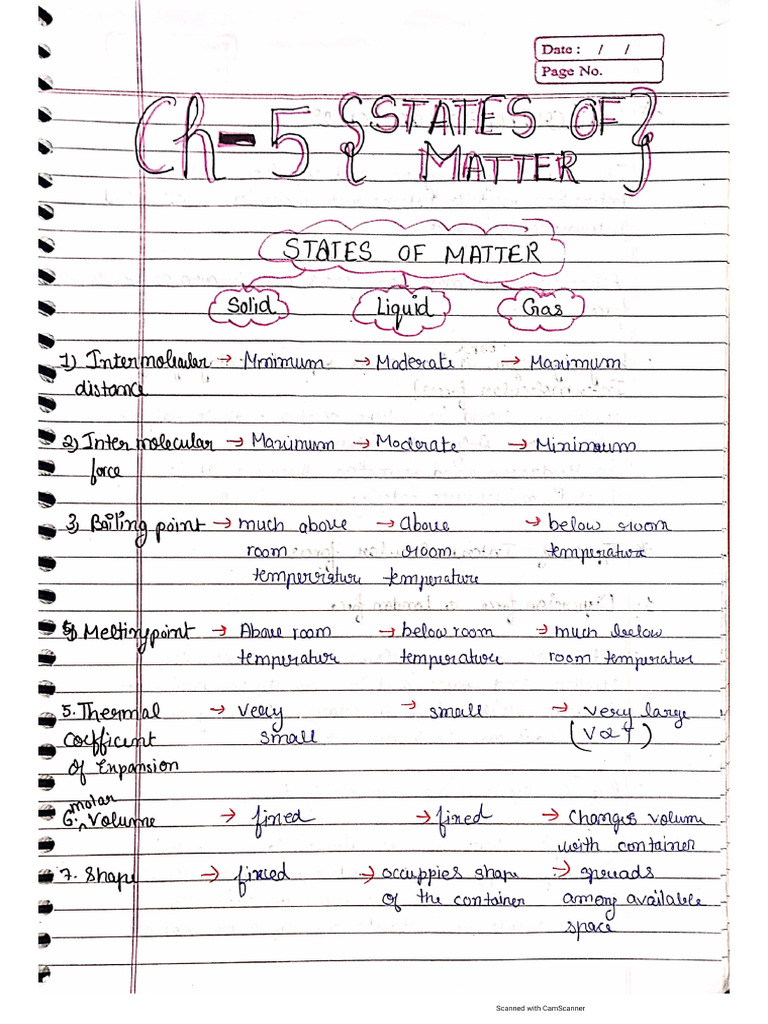 Date : / /
Page No.
Ch-5 {STATES OF
MATTER}
STATES OF MATTER
Solid Liquid Gas
1) Intermolecular → Minimum → Moderate → Maximum
distance
2) Intermolecular → Maximum → Moderate → Minimum
force
3) Boiling point → much above → Above → below room
room room temperature
temperature temperature
4) Melting point → Above room → below room → much below
temperature temperature room temperature
5. Thermal → very → small → very large
Coefficient small (V∝T)
of Expansion
molar
6. ^ Volume → fixed → fixed → Changes volume
with container
7. Shape → fixed → occuppies shape → spreads
of the container among available
space
Scanned with CamScanner